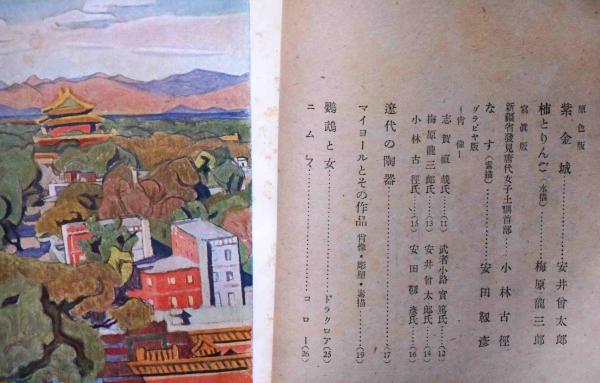 原色版
紫金城…………安井曾太郎
柿とりんご(水描)…………梅原龍三郎
寫眞版
新疆省發見唐代女子土偶首部…………小林古徑
なす(素描)…………安田靫彥
グラビヤ版
―肖像―
志賀直哉氏…………(11) 武者小路實篤氏…………(12)
梅原龍三郎氏…………(13) 安井曾太郎氏…………(14)
小林古徑氏…………(15) 安田靫彥氏…………(16)
遼代の陶器…………(17)
マイヨールとその作品 肖像・彫塑・素描…………(19)
鸚鵡と女…………ドラクロア(25)
ニムフ…………コロー(26)